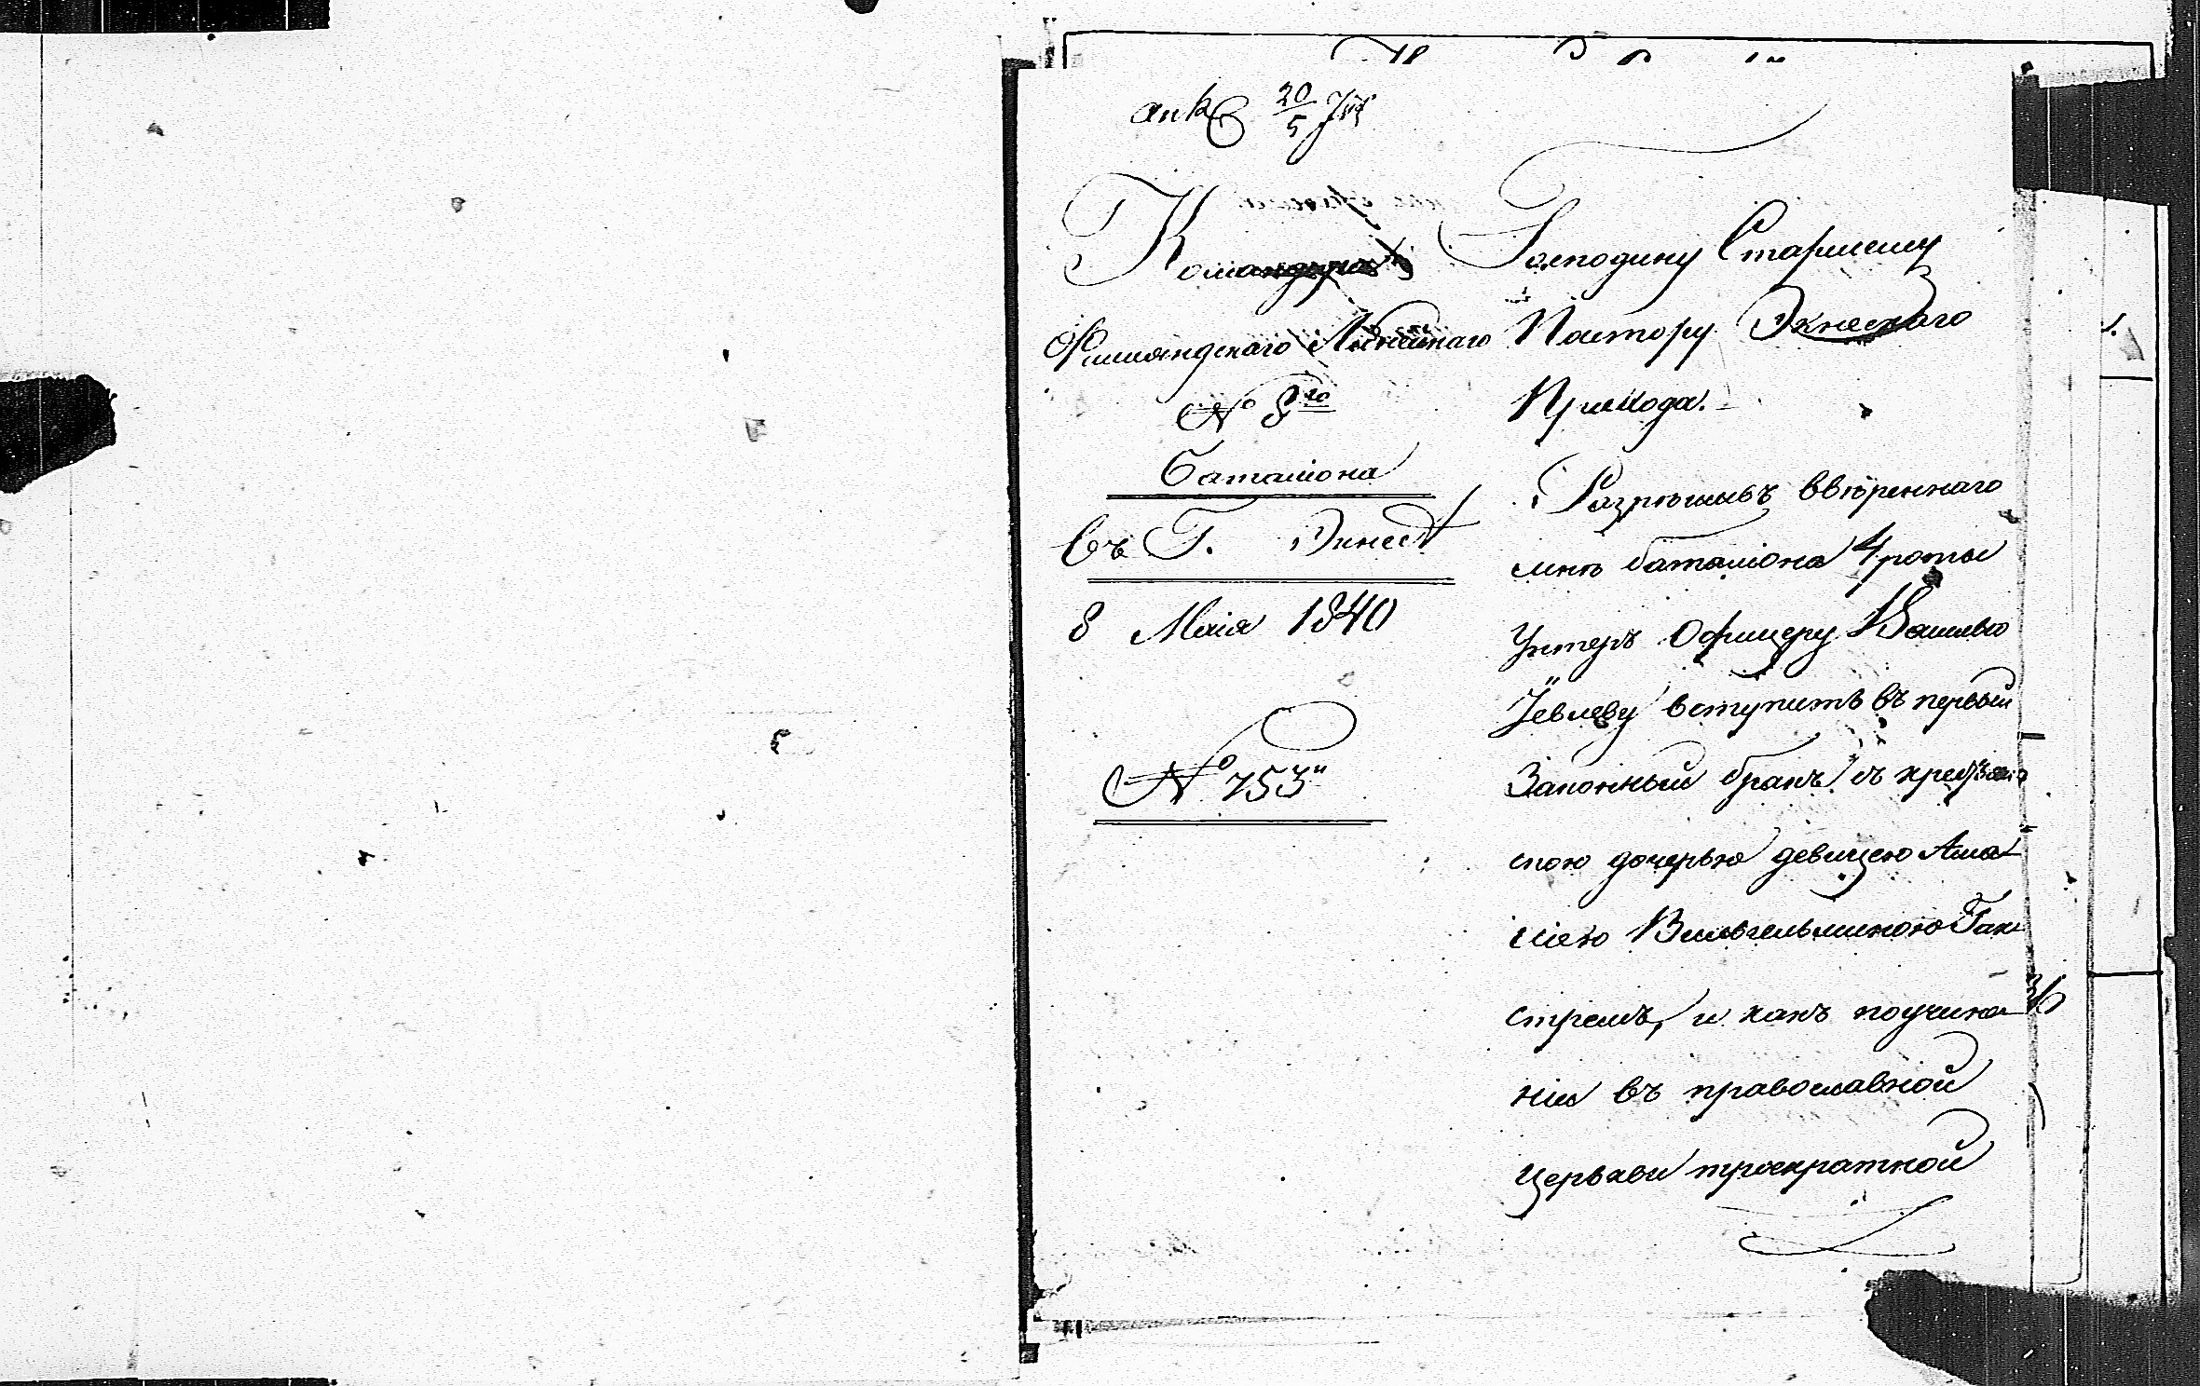 ank 20/5
Командира
Финляндскаго Линейнаго
№ 8го
Баталіона
въ Г. Экнес
8 Маія 1840
№ 753"
Господину Старшему
Пастору Экнескаго
Прихода.
Разрѣшивъ ввѣреннаго
мнѣ баталіона 4 роты
Унтеръ Офицеру Василью
Іевлеву вступить въ первый
Законный бракъ съ крестьян
скою дочерью девицею Ама
ліею Вильгельминою Гак
стремъ, и какъ поучина
ніи въ православной
церькви троекратной